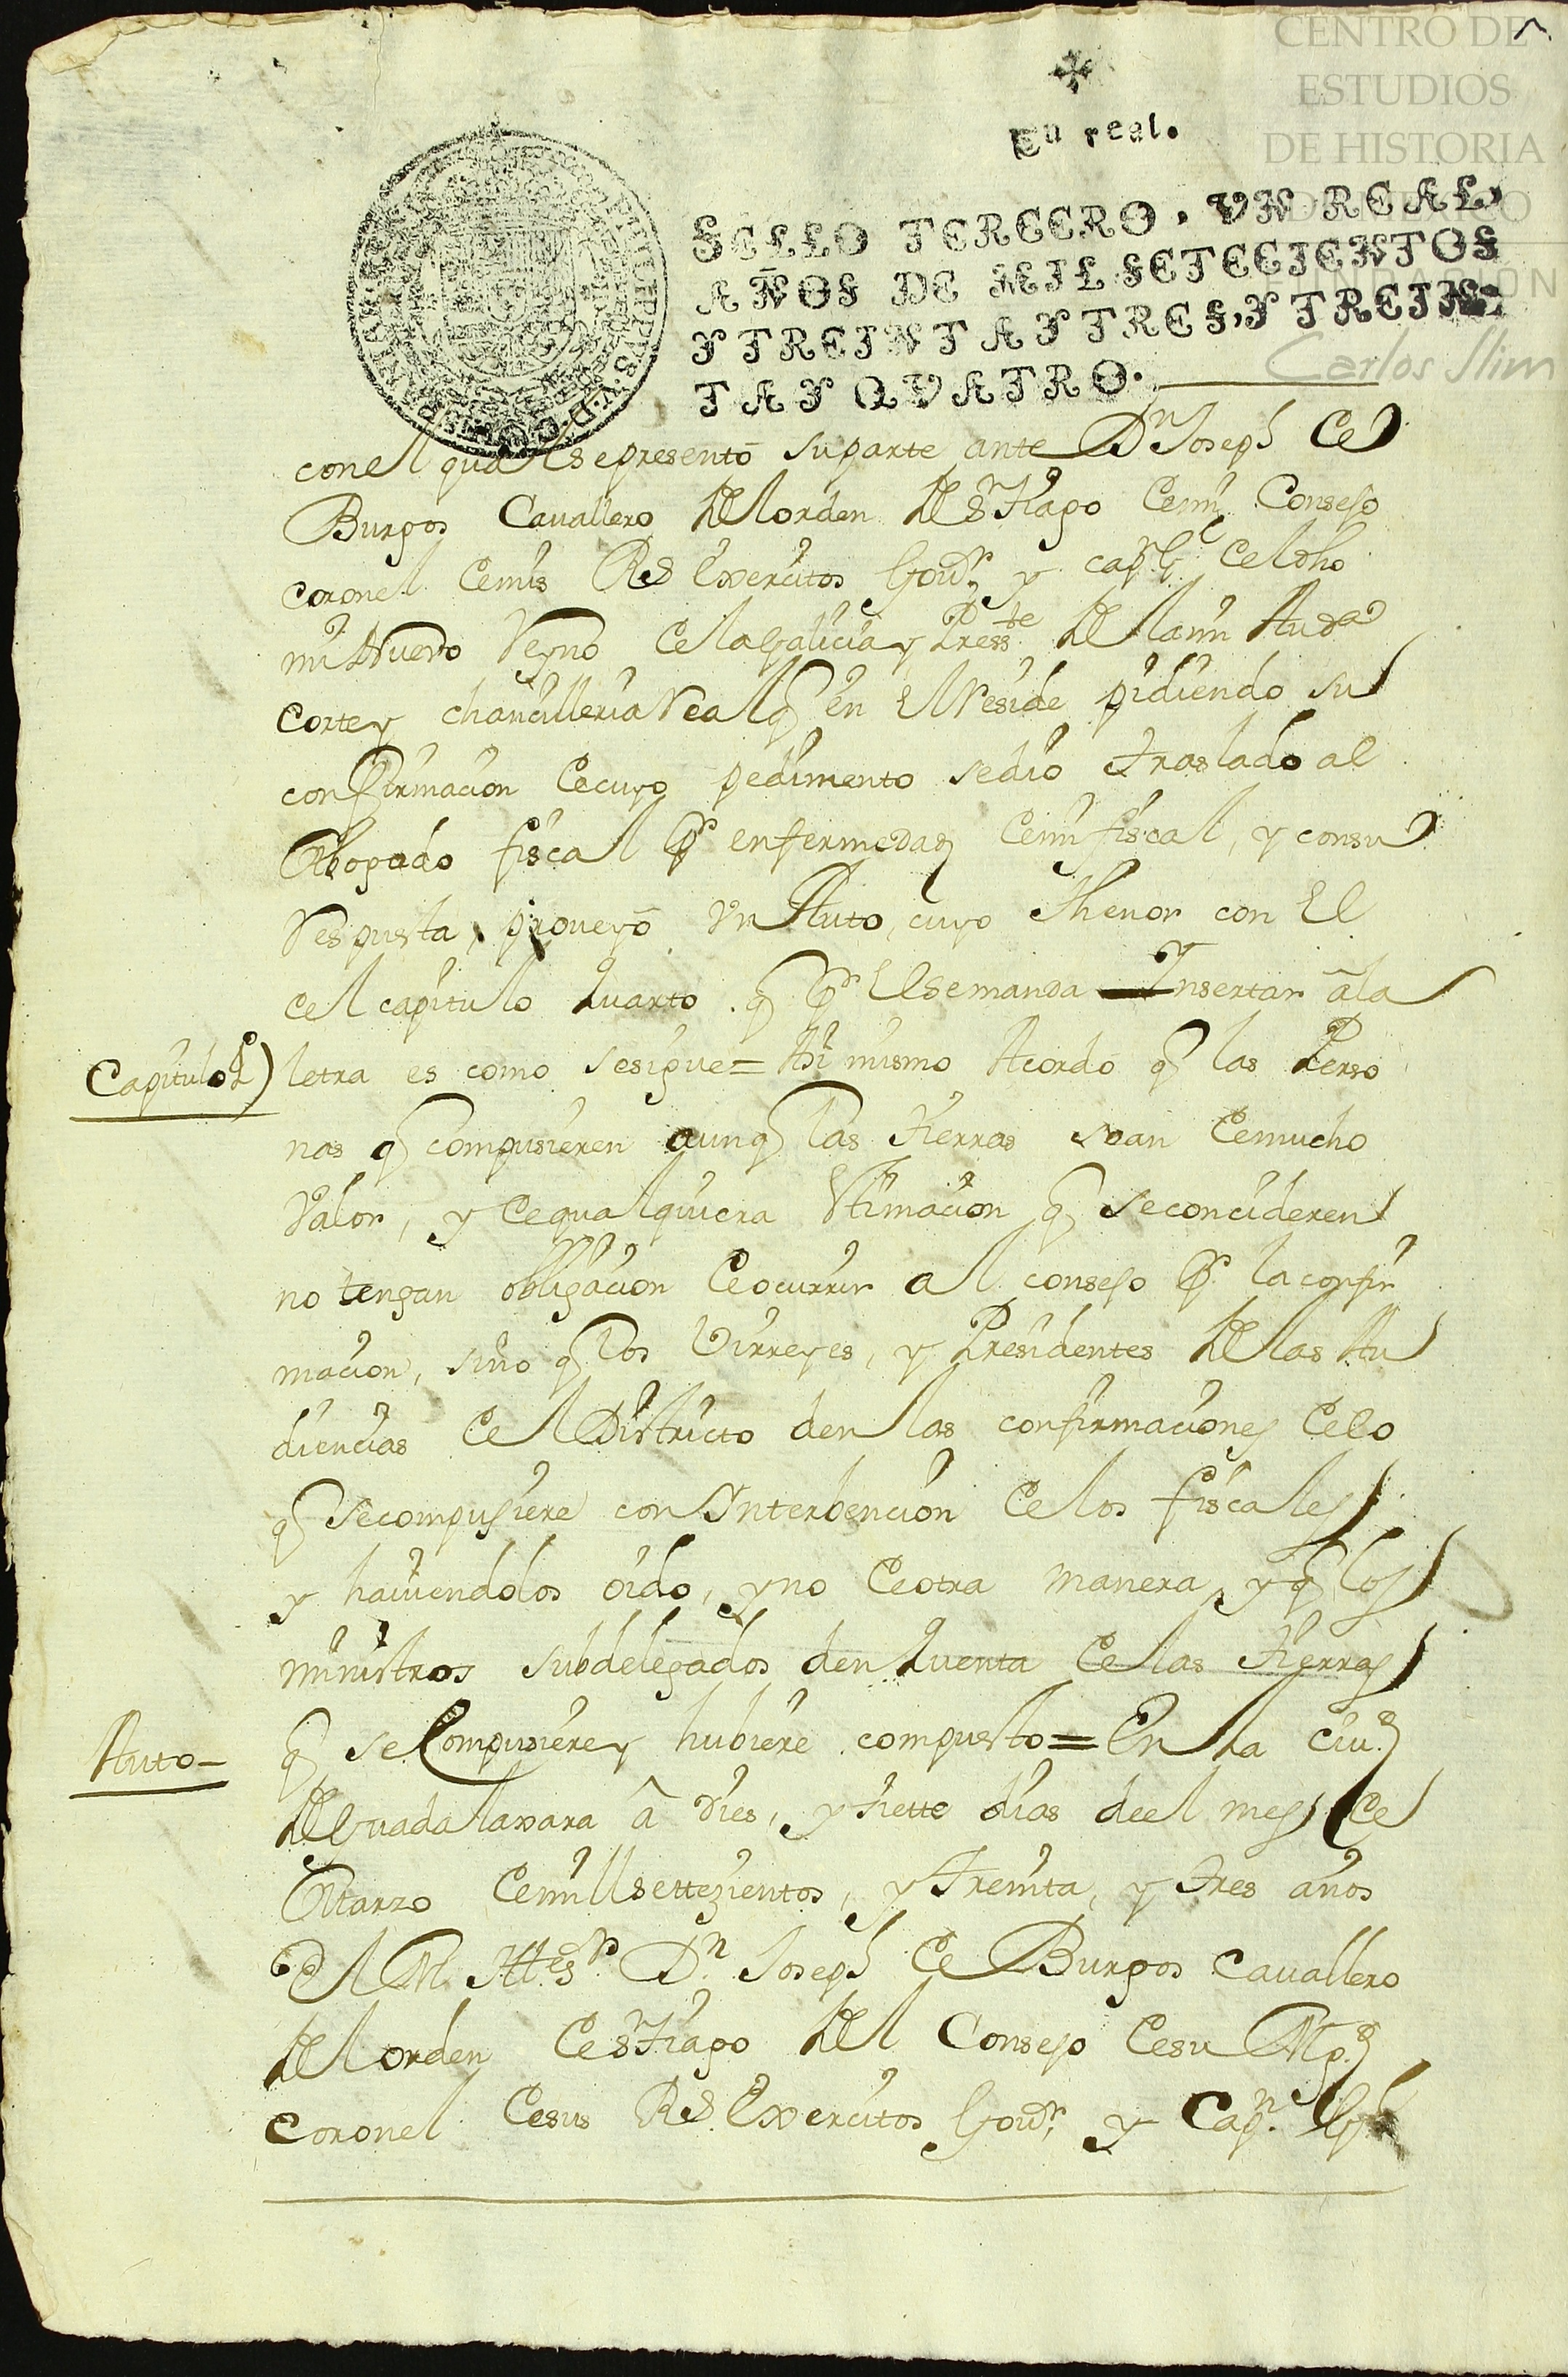 CENTRO DE
ESTUDIOS
DE HISTORIA
Carlos Slim
Un real.
SELLO TERCERO, UN REAL,
AÑOS DE MIL SETECIENTOS
Y TREINTA Y TRES, Y TREIN-
TA Y QUATRO.
con el qual se presentô su parte ante Dn Joseph de
Burgos Cavallero del orden de Sntiago de mi Consejo
coronel de mis Rs Exercitos Govr y capn Gl del dho
mi Nuevo Reyno de la Galicia y Presste de la mi Auda
Corte y chancilleria Real q en el reside pidiendo su
confirmacion de cuyo pedimento se dio traslado al
Abogado fiscal pr enfermedad de mi fiscal, y con su
respuesta, proveyô un Auto, cuyo thenor con el
del capitulo quarto q pr el se manda Insertar â la
Capitulo 4)
letra es como se sigue = Asi mismo Acordó q las Perso
nas q compusieren aunq las tierras sean de mucho
valor, y de qualquiera estimacion q se concideren
no tengan obligacion de ocurrir al consejo pr la confir
macion, sino q los Virreyes, y Presidentes de las Au
diencias del Districto den las confirmaciones de lo
q se compusiere con Interbencion de los fiscales
y haviendolos oido, y no de otra manera, y q los
ministros subdelegados den quenta de las tierras
Auto-
q se Compusiere y hubiere compuesto = En la ciud
de Guadalaxara â dies, y siette dias deel mes de
Marzo de mill settezientos, y treinta, y tres años
El M. Iltte sr Dn Joseph de Burgos Cavallero
del orden de Sntiago del Consejo de su Mgd
coronel de sus Rs Exercitos Govr, y Capn Gl